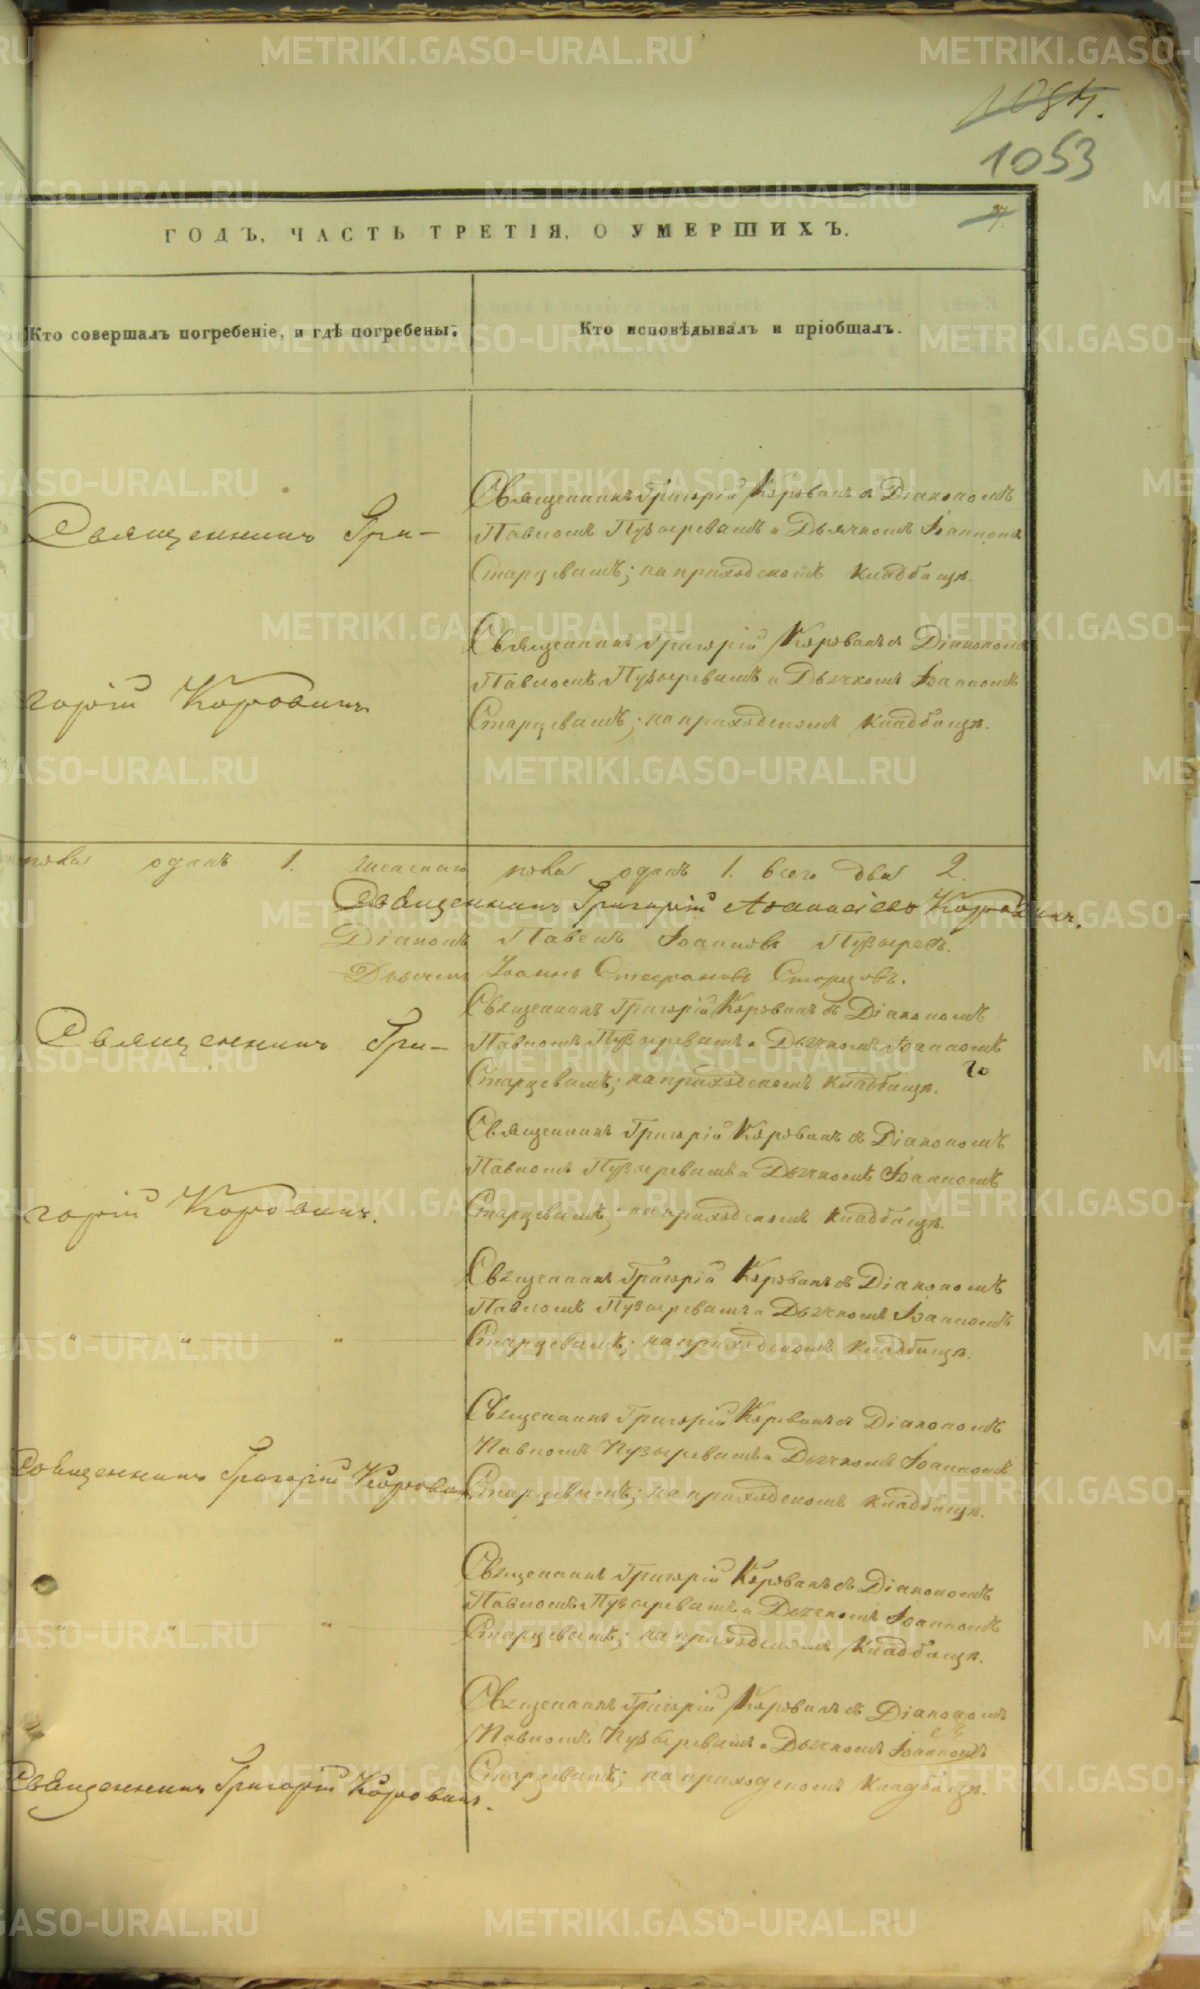 1084.
1053
ГОДЪ, ЧАСТЬ ТРЕТІЯ, О УМЕРШИХЪ.
Кто совершалъ погребеніе, и гдѣ погребены.
Кто исповѣдывалъ и пріобщалъ.
Священникъ Гри-
горій Коровинъ
Священникъ Григорій Коровинъ съ Діакономъ
Павломъ Пузыревымъ и Дьячкомъ Іоанномъ
Старцевымъ; на приходскомъ кладбищѣ.
Священникъ Григорій Коровинъ съ Діакономъ
Павломъ Пузыревымъ и Дьячкомъ Іоанномъ
Старцевымъ; на приходскомъ кладбищѣ.
пола одинъ 1. женскаго пола одинъ 1. всего два 2.
Священникъ Григорій Аѳанасіевъ Коровинъ.
Діаконъ Павелъ Іоанновъ Пузыревъ.
Дьячекъ Іоаннъ Стефановъ Старцовъ.
Священникъ Гри-
горій Коровинъ.
Священникъ Григорій Коровинъ съ Діакономъ
Павломъ Пузыревымъ и Дьячкомъ Іоанномъ
Старцевымъ; на приходскомъ кладбищѣ.
Священникъ Григорій Коровинъ съ Діакономъ
Павломъ Пузыревымъ и Дьячкомъ Іоанномъ
Старцевымъ; на приходскомъ кладбищѣ.
" " "
Священникъ Григорій Коровинъ съ Діакономъ
Павломъ Пузыревымъ и Дьячкомъ Іоанномъ
Старцевымъ; на приходскомъ кладбищѣ.
Священникъ Григорій Коровин
Священникъ Григорій Коровинъ съ Діакономъ
Павломъ Пузыревымъ и Дьячкомъ Іоанномъ
Старцевымъ; на приходскомъ кладбищѣ.
" " "
Священникъ Григорій Коровинъ съ Діакономъ
Павломъ Пузыревымъ и Дьячкомъ Іоанномъ
Старцевымъ; на приходскомъ кладбищѣ.
Священникъ Григорій Коровинъ.
Священникъ Григорій Коровинъ съ Діакономъ
Павломъ Пузыревымъ и Дьячкомъ Іоанномъ
Старцевымъ; на приходскомъ кладбищѣ.
METRIKI.GASO-URAL.RU